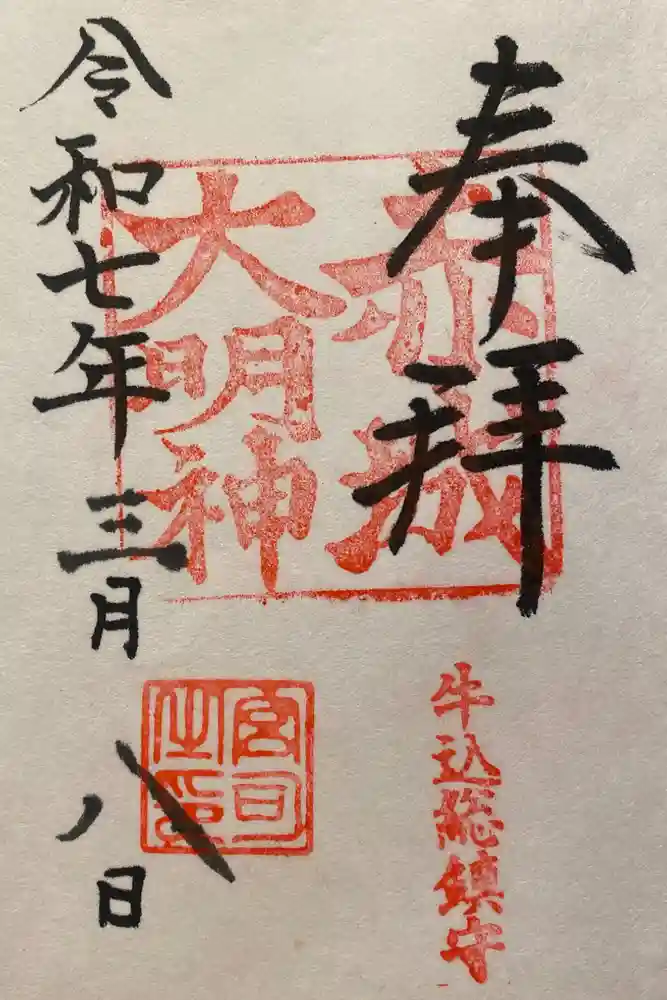 奉拝
赤城
大明神
牛込総鎮守
令和七年三月八日
宮司
之印